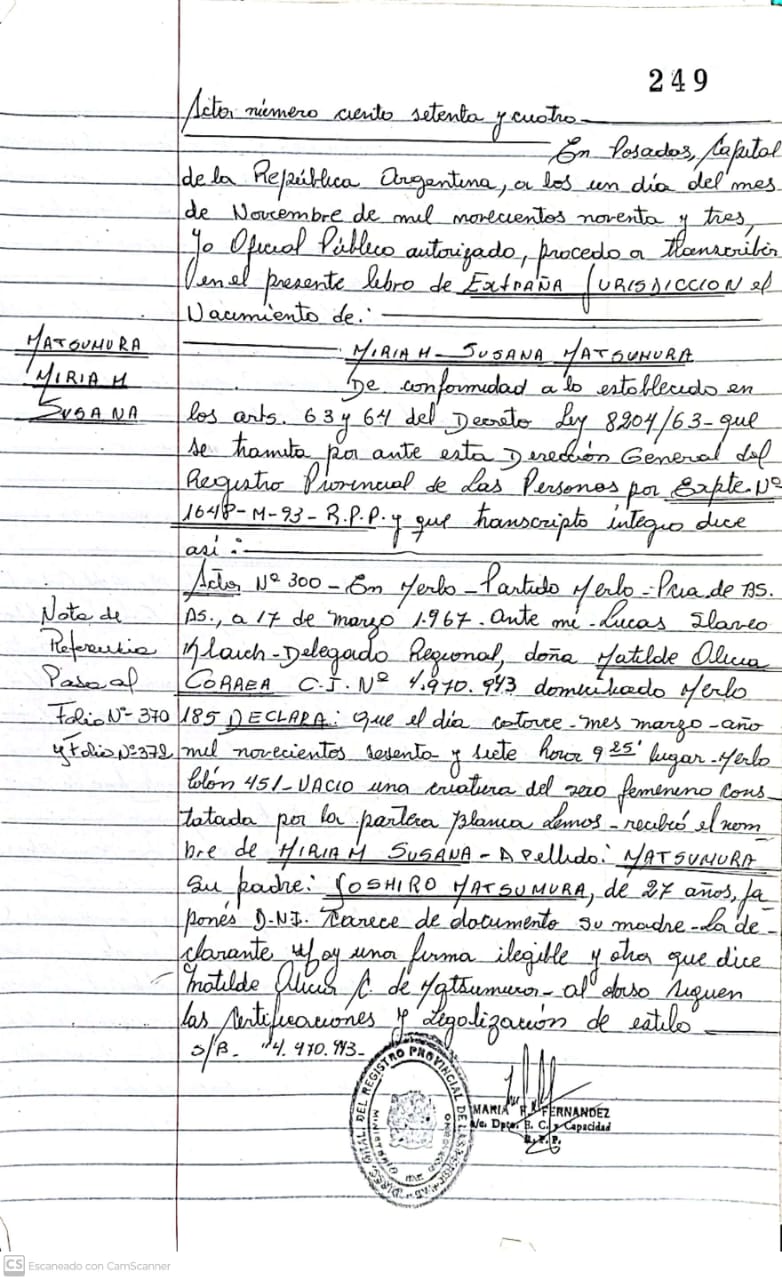 249
Acta número ciento setenta y cuatro
En Posadas, Capital
de la República Argentina, a los un día del mes
de Noviembre de mil novecientos noventa y tres,
Yo Oficial Público autorizado, procedo a transcribir
en el presente libro de EXTRAÑA JURISDICCION el
Nacimiento de:
MATSUMURA
MIRIAM
SUSANA
MIRIAM - SUSANA MATSUMURA
De conformidad a lo establecido en
los arts. 63 y 64 del Decreto Ley 8204/63 - que
se tramita por ante esta Dirección General del
Registro Provincial de Las Personas por Expte. Nº
1648-M-93- R.P.P. y que transcripto íntegro dice
así:
Acta Nº 300 - En Merlo - Partido Merlo - Pcia de BS.
AS., a 17 de marzo 1.967. Ante mi - Lucas
Delegado Regional, doña Matilde Alicia
CORREA C.I. Nº 4.970.943 domiciliado Merlo
185 DECLARA: que el día catorce - mes marzo - año
mil novecientos sesenta y siete hora 9 25' lugar - Merlo
Colón 451 - NACIO una criatura del sexo femenino cons-
tatada por la partera Blanca Lemos - recibió el nom-
bre de MIRIAM SUSANA - Apellido: MATSUMURA
Su padre: YOSHIRO MATSUMURA, de 27 años, ja-
ponés D.N.I. Carece de documento su madre - La de-
clarante Hay una firma ilegible y otra que dice
Matilde Alicia C. de Matsumura - al dorso siguen
las certificaciones y Legalización de estilo
S/B. "4.970.943-
Nota de
Referencia
Pasa al
Folio Nº 370
y Folio Nº 372
DIREC. GRAL. DEL REGISTRO PROVINCIAL DE LAS PERSONAS
MINISTERIO DE GOBIERNO
MARIA F. FERNANDEZ
a/c. Dpto. E. C. y Capacidad
R. P. P.
CS Escaneado con CamScanner